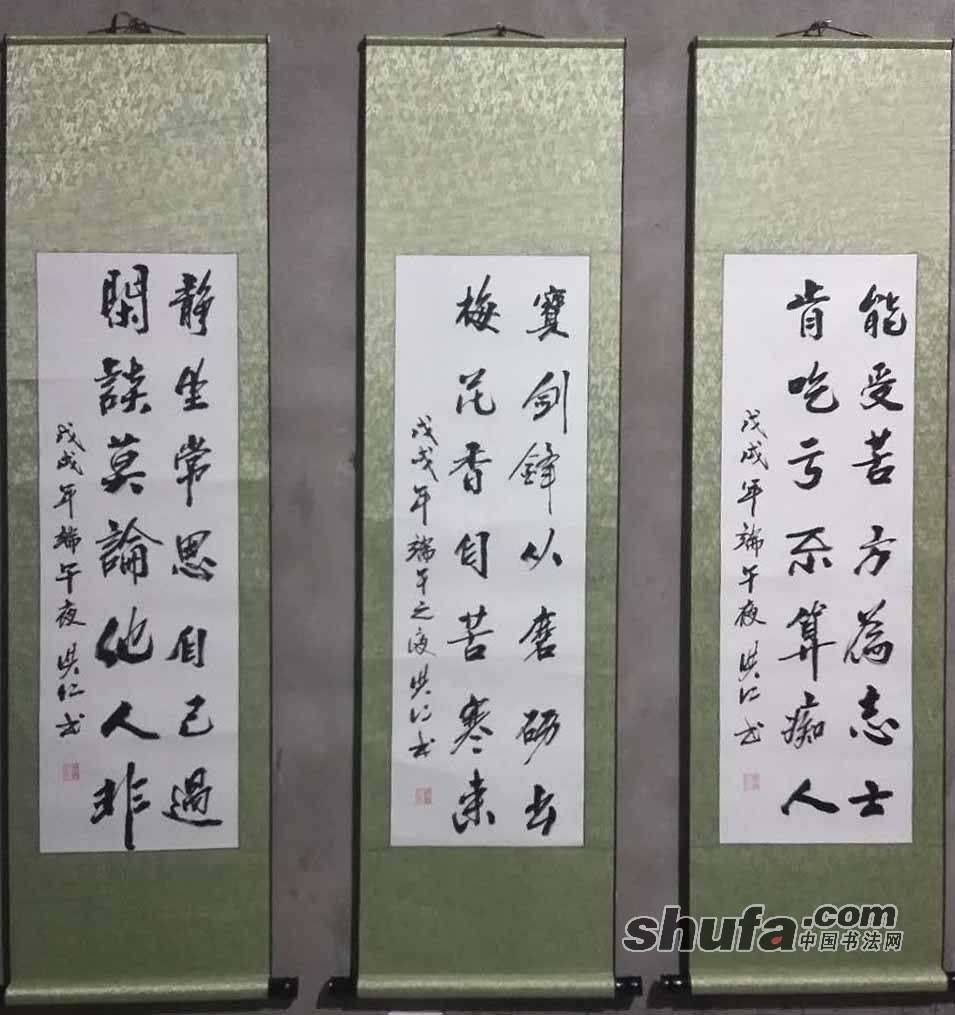 能受苦方為志士
肯吃亏不算痴人
戊戌年端午夜 洪仁书
寶剑鋒从磨砺出
梅花香自苦寒来
戊戌年端午之夜 洪仁书
静坐常思自己過
閑談莫論他人非
戊戌年端午夜 洪仁书
shufa.com
中国书法网